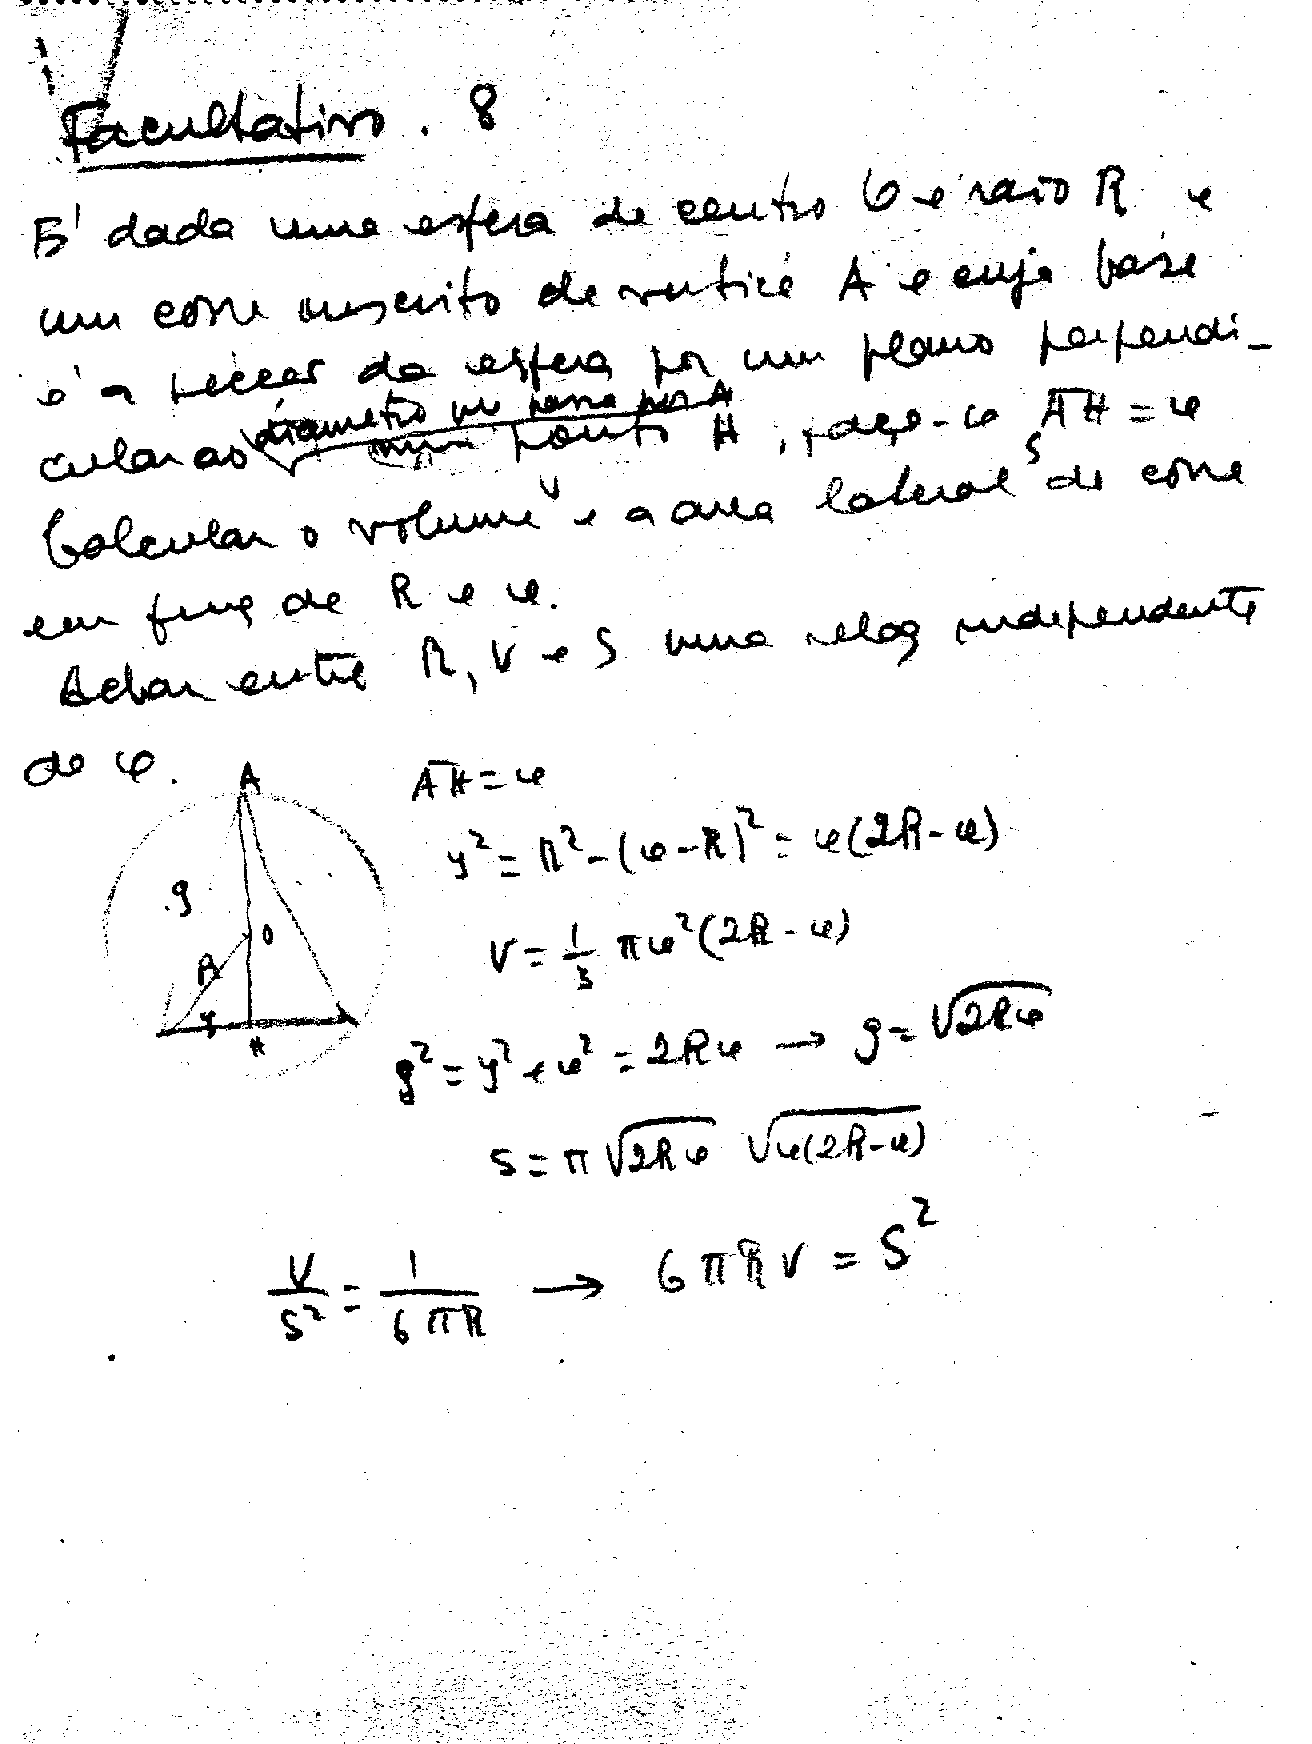 Facultativo. 8
É dada uma esfera de centro O e raio R e
um cone inscrito de vertice A e cuja base
é a secção da esfera por um plano perpendi-
cular ao diâmetro que passa por A
num ponto H, faça-se AH = φ
Calcular o volume V e a area lateral S do cone
em funç de R e φ.
Achar entre R, V e S uma relaç independente
de φ.
A
AH = φ
y² = R² - (φ - R)² = φ(2R - φ)
g
O
V = 1/3 πφ²(2R - φ)
R
y
H
g² = y² + φ² = 2Rφ → g = √2Rφ
S = π √2Rφ √φ(2R - φ)
V/S² = 1/6πR → 6πRV = S²